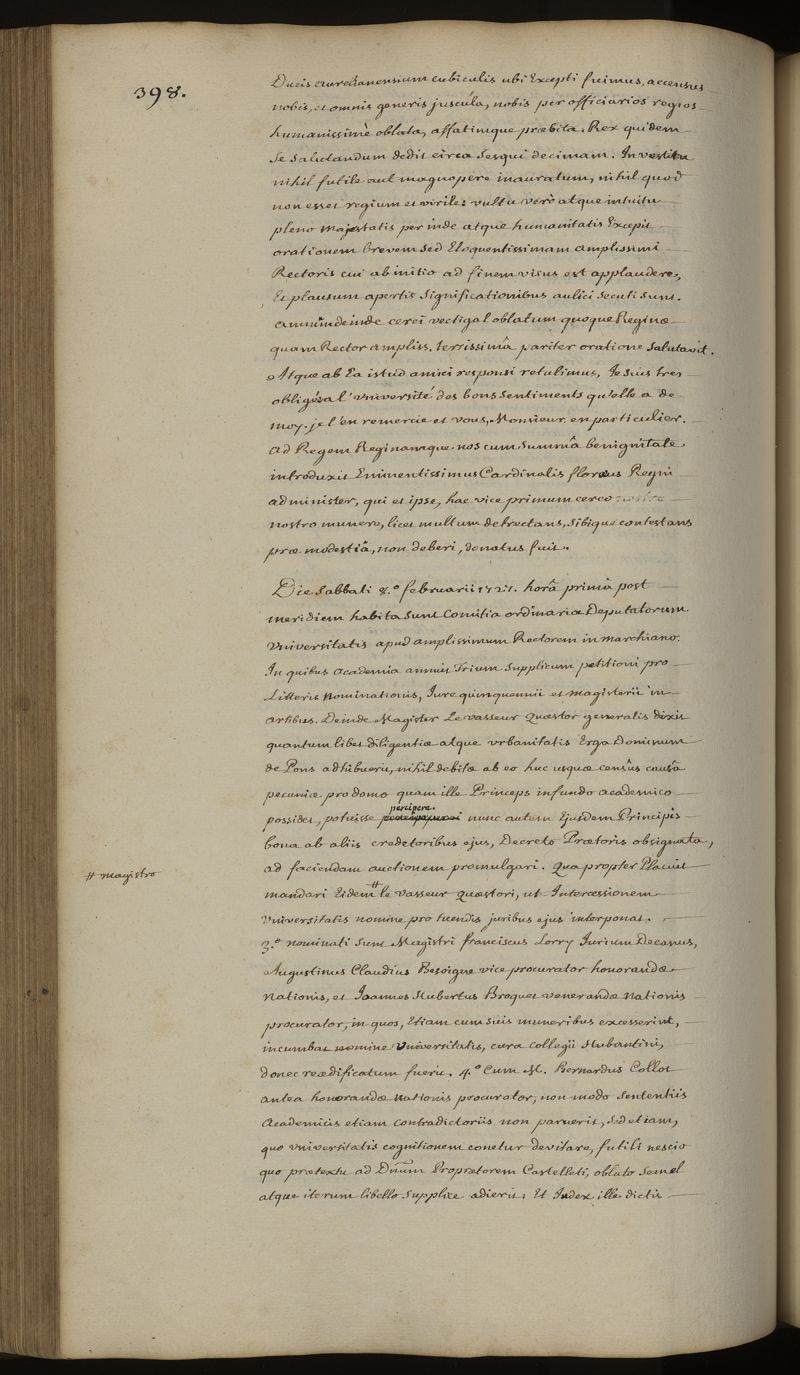 398.
Ducis Aurelianensium cubiculis ubi Excepti fuimus, accensus
nobis, et omnis generis juscula, nobis per officiarios regios
humanissimè oblata, affatimque præbita. Rex quidem
se salutandum dedit circa sesqui decimam. In vestitu
nihil futile aut magnopere inauratum, nihil quod
non esset regium et virile; vultu verò atque intuitu
pleno majestatis perinde atque humanitatis Excepit
orationem brevem sed Eloquentissimam amplissimi
Rectoris cui ab initio ad finem visus est applaudere,
Et plausum apertis significationibus aulici secuti sunt.
annuum deinde cerei vectigal oblatum quoque Reginæ
quam Rector ampliss. tersissimâ pariter oratione salutavit.
Atque ab Ea istud amici responsi retulimus, Je suis tres
obligée a l'université des bons sentiments qu'elle a de
moy. je l'en remercie et vous, Monsieur, en particulier.
ad Regem Reginamque nos cum summâ benignitate
introduxit Eminentissimus Cardinalis florœus Regni
administer, qui et ipse, hac vice primum cereo
nostro munere, licet multum detrectans, sibique contestans
præ modestiâ, non deberi, donatus fuit.
Die Sabbati 8.º februarii 1727. horâ primâ post
meridiem habita sunt Comitia ordinaria Deputatorum
Universitatis apud amplissimum Rectorem in marchiano.
In quibus Academia annuit Trium supplicum petitioni pro
Litteris Nominationis, Jure quinquennii et magisterii in
artibus. Deinde Magister Le vasseur Quæstor generalis dixit
quantum libet diligentiæ atque urbanitatis Erga Dominum
de Pons adhibuerit, nihil debitæ ab eo huc usquæ censûs causâ
pecuniæ pro domo quam ille Princeps in fundo academico
possidet, potuisse percipere. nunc autem Ejusdem Principis
bona ab aliis creditoribus ejus, Decreto Prætoris obsignata,
ad faciendam auctionem promulgari. Quapropter Placuit
# magistro
mandari Eidem # le vasseur quæstori, ut Intercessionem
Universitatis nomine pro tuendis juribus ejus interponat.
3.º nominati sunt Magistri franciscus Lorry Jurium Decanus,
Augustinus Claudius Besoigne vice procurator honorandæ
Nationis, et Joannes Hubertus Broquet venerandæ Nationis
procurator, in quos, Etiam cum suis muneribus excesserint,
incumbat nomine Universitatis, cura collegii Hubantini,
donec reædificatum fuerit. 4.º Cum M. Bernardus Collot
antea honorandæ Nationis procurator, non modo sententiis
Academicis etiam contradictoriis non paruerit, sed etiam,
quo universitatis cognitionem conetur devitare, futili nescio
quo prætextu ad Dnum Proprætorem Castelleti, oblato semel
atque iterum libello supplice adierit; Et Judex ille dictis